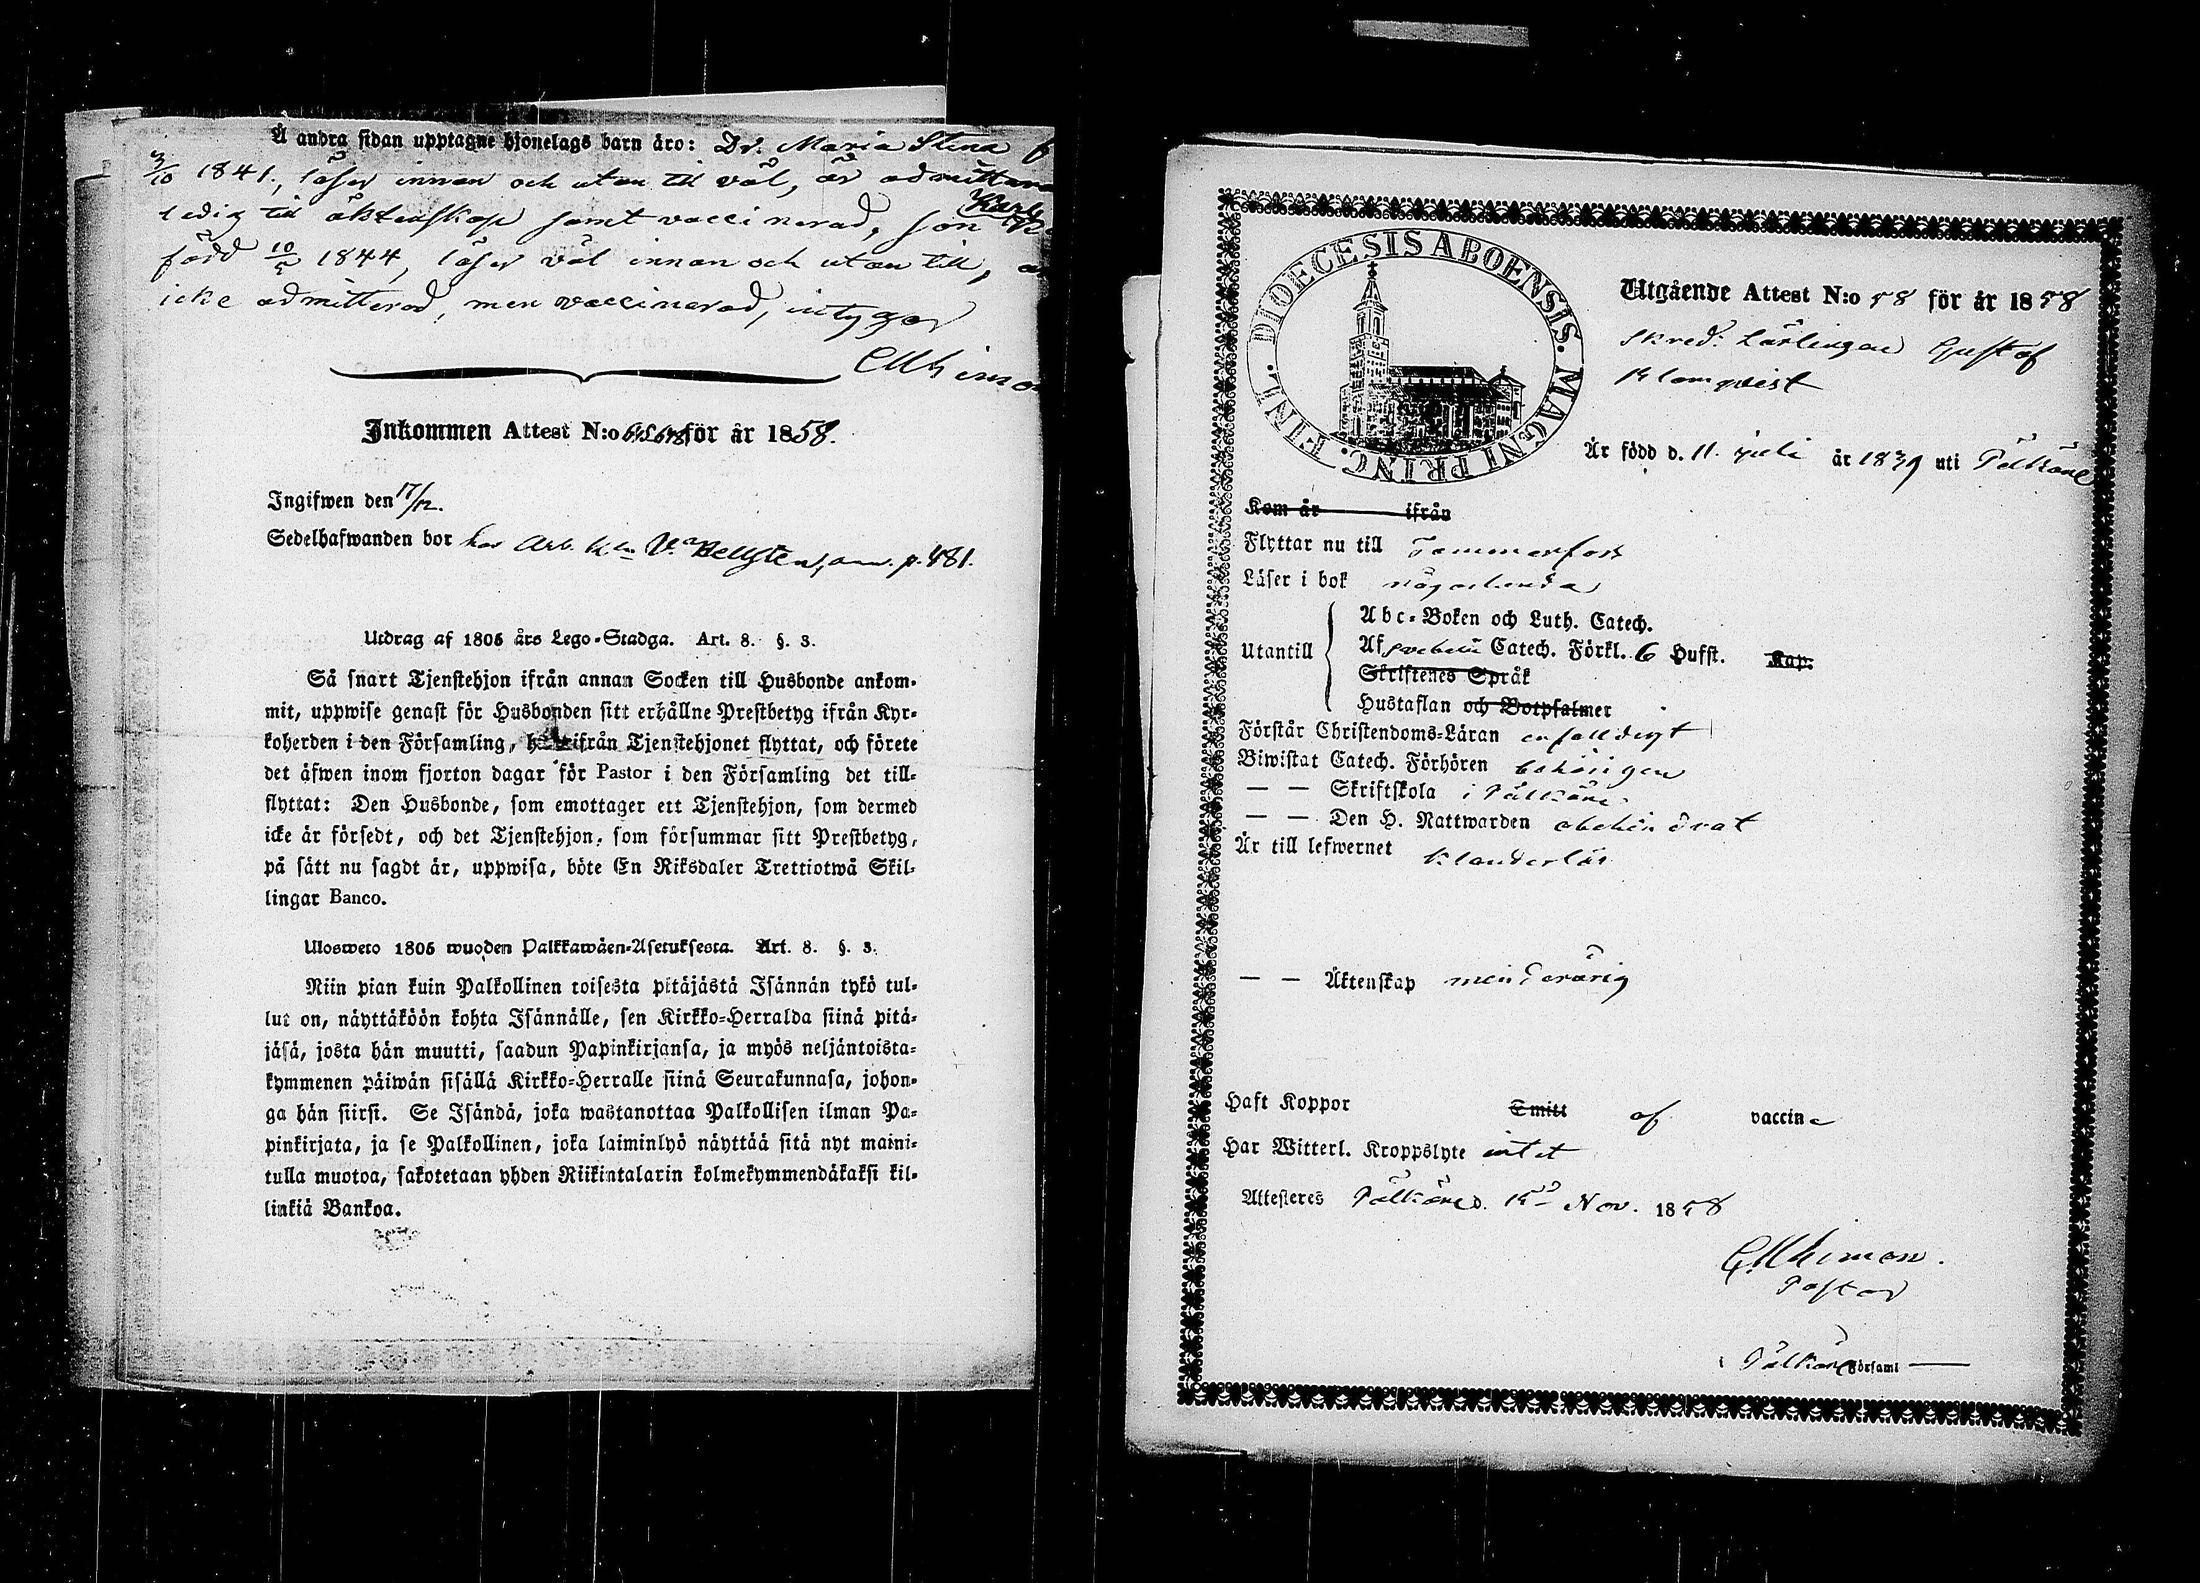 Å andra sidan upptagne hjonelags barn äro: Dr. Maria Stina
3/10 1841., läser innan och utan till väl, är admitterad
ledig till äktenskap samt vaccinerad, son Karl
född 10/5 1844, läser väl innan och utan till,
icke admitterad, men vaccinerad, intygar
Inkommen Attest N:o för år 1858.
Ingifwen den 17/12.
Sedelhafwanden bor hos Arb. p. 481.
Utdrag af 1805 års Lego-Stadga. Art. 8. §. 3.
Så snart Tjenstehjon ifrån annan Socken till Husbonde ankom-
mit, uppwise genast för Husbonden sitt erhållne Prestbetyg ifrån Kyr-
koherden i den Församling, ifrån Tjenstehjonet flyttat, och förete
det äfwen inom fjorton dagar för Pastor i den Församling det till-
flyttat: Den Husbonde, som emottager ett Tjenstehjon, som dermed
icke är försedt, och det Tjenstehjon, som försummar sitt Prestbetyg,
på sätt nu sagdt är, uppwisa, böte En Riksdaler Trettiotwå Skil-
lingar Banco.
Ulosweto 1805 wuoden Palkkawäen-Asetuksesta. Art. 8. §. 3.
Niin pian kuin Palkollinen toisesta pitäjästä Isännän tykö tul-
lut on, näyttäköön kohta Isännälle, sen Kirkko-Herralda siinä pitä-
jäsä, josta hän muutti, saadun Papinkirjansa, ja myös neljäntoista-
kymmenen päiwän sisällä Kirkko-Herralle siinä Seurakunnasa, johon-
ga hän siirsi. Se Isändä, joka wastanottaa Palkollisen ilman Pa-
pinkirjata, ja se Palkollinen, joka laiminlyö näyttää sitä nyt maini-
tulla muotoa, sakotetaan yhden Riikintalarin kolmekymmendäkaksi kil-
linkiä Bankoa.
DIOECESIS ABOENSIS. MAGNI PRINC. FINL.
Utgående Attest N:o 58 för år 1858
Skred. Lärlingen Gustaf
Blomqvist
Är född d. 11 juli år 1839 uti Pälkäne
Kom år ifrån
Flyttar nu till Tammerfors
Läser i bok någorlunda
Utantill
Abc-Boken och Luth. Catech.
Af Svebelii Catech. Förkl. 6 Hufst. Kap.
Skriftenes Språk
Hustaflan och Botpsalmer
Förstår Christendoms-Läran enfaldigt
Biwistat Catech. Förhören behörigen
— — Skriftskola i Pälkäne
— — Den H. Nattwarden obehindrat
Är till lefwernet klanderlös
— — Äktenskap minderårig
Haft Koppor Smitt af vaccine
Har Witterl. Kroppslyte intet
Attesteres Pälkäne d. Nov. 1858
Pastor
i Pälkäne Församl